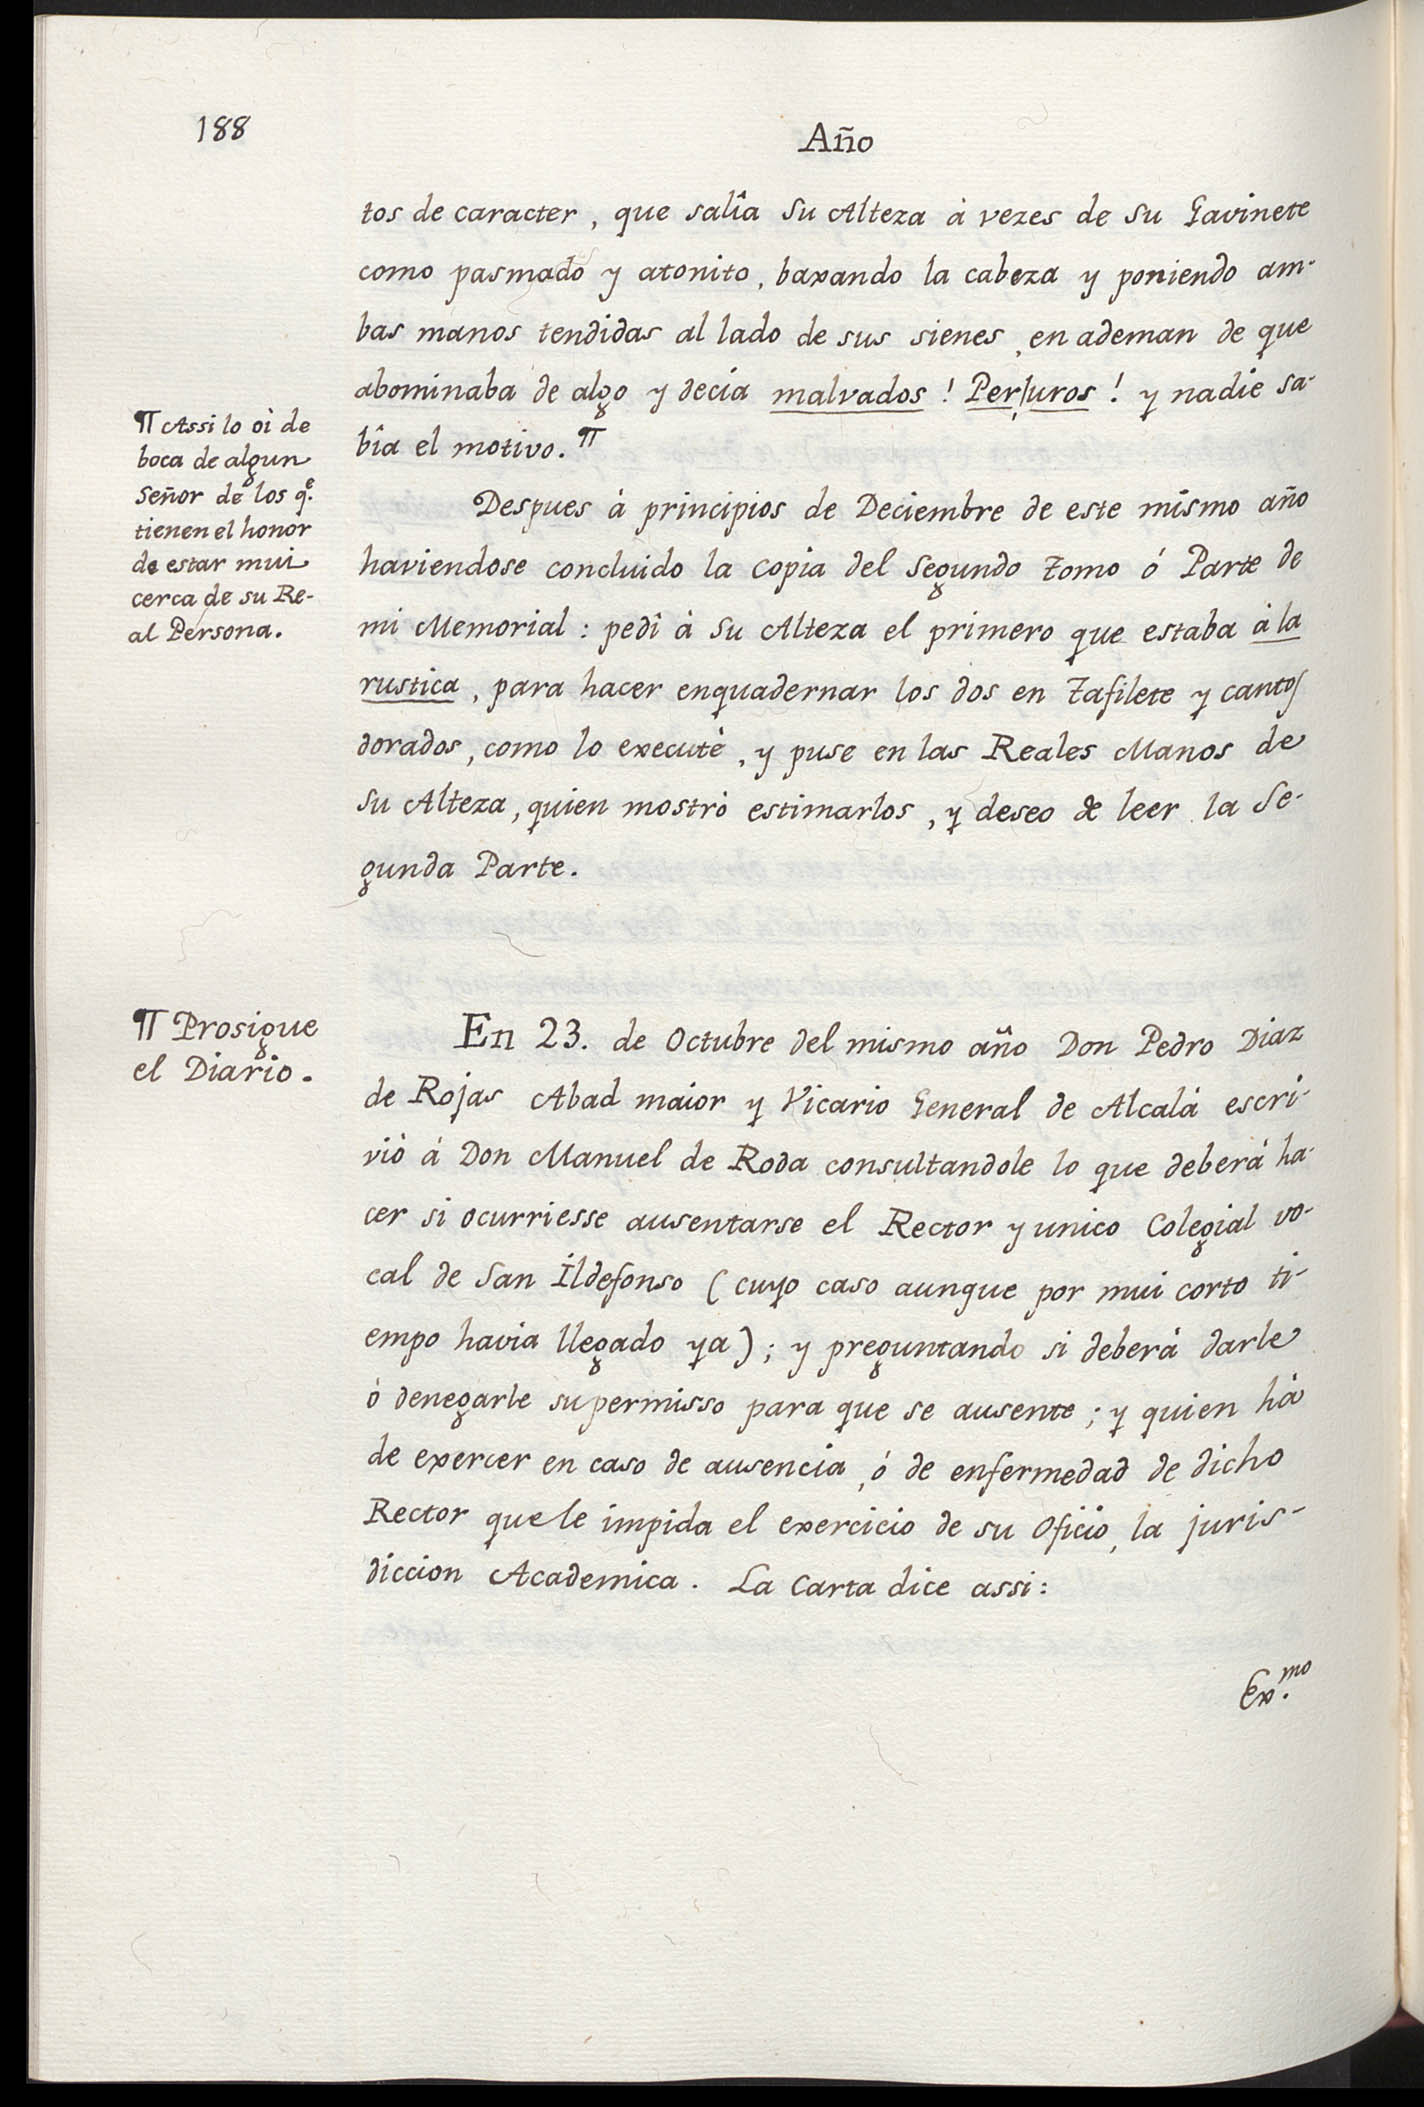 188
Año
tos de caracter, que salîa Su Alteza à vezes de su Gavinete
como pasmado y atonito, baxando la cabeza y poniendo am-
bas manos tendidas al lado de sus sienes, en ademan de que
abominaba de algo y decía malvados! Perjuros! y nadie sa-
bîa el motivo.¶
¶ Assi lo oì de
boca de algun
Señor de los q.e
tienen el honor
de estar mui
cerca de su Re-
al Persona.
Despues à principios de Deciembre de este mismo año
haviendose concluido la copia del Segundo Tomo ó Parte de
mi Memorial: pedî à Su Alteza el primero que estaba à la
rustica, para hacer enquadernar los dos en Tafilete y cantos
dorados, como lo executè, y puse en las Reales Manos de
Su Alteza, quien mostrò estimarlos, y deseo de leer la Se-
gunda Parte.
¶ Prosigue
el Diario.
En 23. de Octubre del mismo año Don Pedro Diaz
de Rojas Abad maior y Vicario General de Alcalà escri-
viò á Don Manuel de Roda consultandole lo que deberá ha-
cer si ocurriesse ausentarse el Rector y unico Colegial vo-
cal de San Ildefonso (cuyo caso aunque por mui corto ti-
empo havia llegado ya); y preguntando si deberá darle
ò denegarle su permisso para que se ausente; y quien hà
de exercer en caso de ausencia, ó de enfermedad de dicho
Rector que le impida el exercicio de su Oficio, la juris-
diccion Academica. La Carta dice assi:
Ex.mo